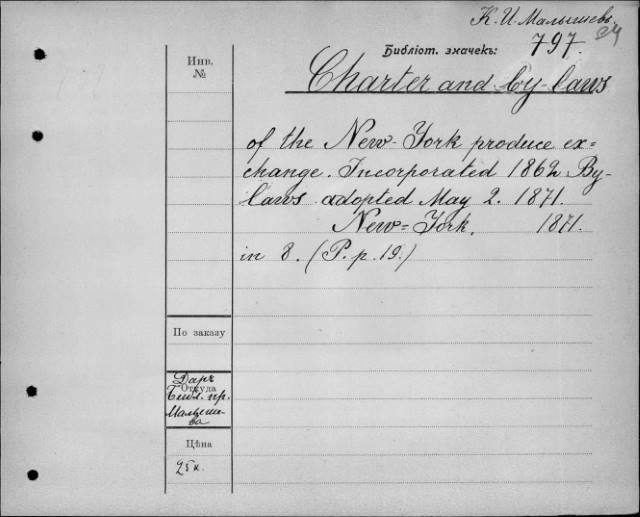 К. И. Малышевъ.
Библіот. значекъ: 797.
Инв.
№
Charter and by-laws
of the New-York produce ex=
change. Incorporated 1862 By-
laws adopted May 2. 1871.
New=York. 1871.
in 8. (P. p. 19.)
По заказу
Даръ
Откуда
Библ. пр.
Малыше-
ва
Цѣна
25 к.